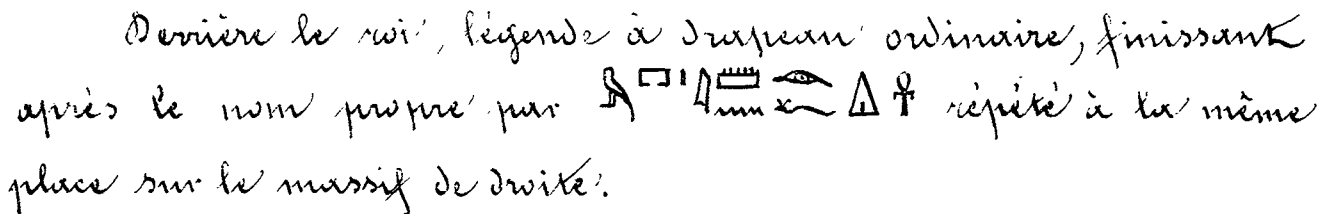 Derrière le roi, légende à drapeau ordinaire, finissant
après le nom propre par 𓅓𓉐𓏤𓇋𓏠𓈖𓁹𓆑𓏙𓋹 répété à la même
place sur le massif de droite.